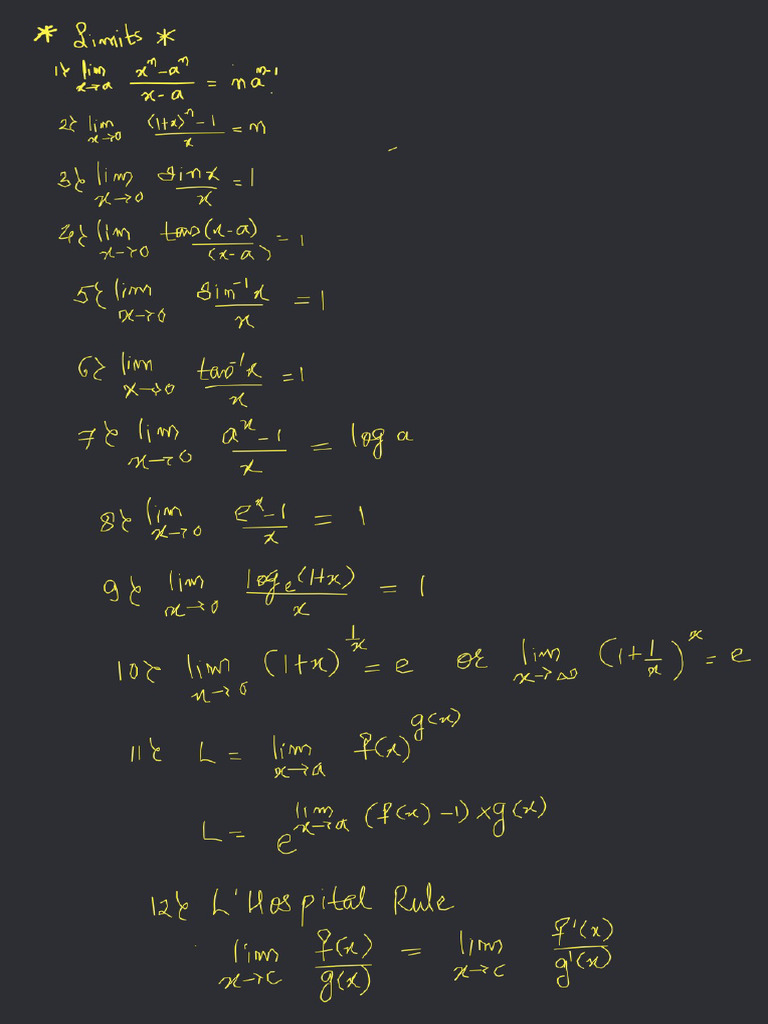 * Limits *
1} lim x→a (xⁿ-aⁿ)/(x-a) = naⁿ⁻¹
2} lim x→0 ((1+x)ⁿ-1)/x = n
3} lim x→0 sinx/x = 1
4} lim x→0 tan(x-a)/(x-a) = 1
5} lim x→0 sin⁻¹x/x = 1
6} lim x→0 tan⁻¹x/x = 1
7} lim x→0 (aˣ-1)/x = log a
8} lim x→0 (eˣ-1)/x = 1
9} lim x→0 logₑ(1+x)/x = 1
10} lim x→0 (1+x)^(1/x) = e or lim x→∞ (1+1/x)^x = e
11} L = lim x→a f(x)^g(x)
L = e^(lim x→a (f(x)-1)×g(x))
12} L'Hospital Rule
lim x→c f(x)/g(x) = lim x→c f'(x)/g'(x)